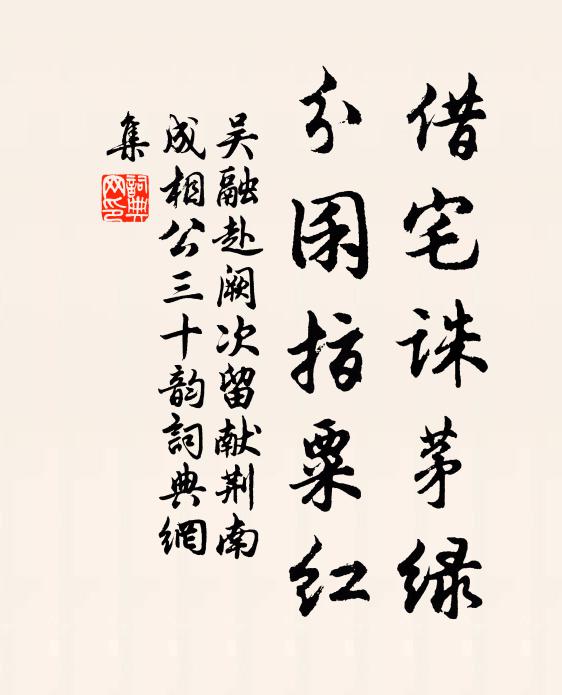 借宅诛茅绿
分囷指粟红
吴融赴阙次留献荆南
成相公三十韵詞典網
集
詞典網印